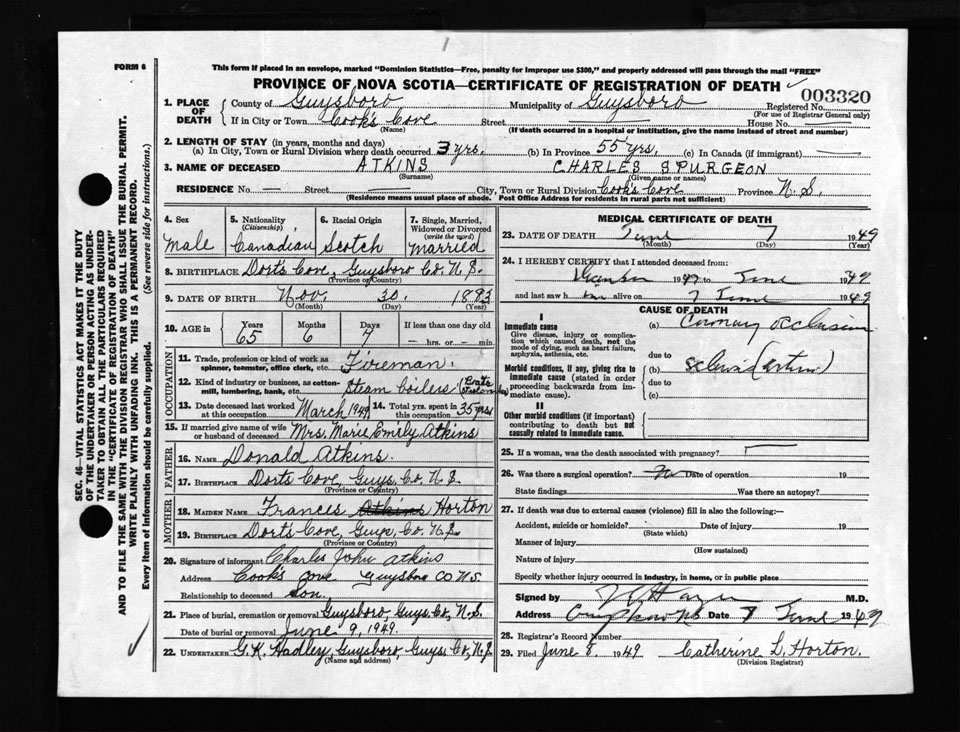 FORM 6
This form if placed in an envelope, marked "Dominion Statistics—Free, penalty for improper use $300," and properly addressed will pass through the mail "FREE"
PROVINCE OF NOVA SCOTIA—CERTIFICATE OF REGISTRATION OF DEATH
003320
1. PLACE OF DEATH
County of Guysboro Municipality of Guysboro Registered No.
(For use of Registrar General only)
If in City or Town Cook's Cove Street House No.
(Name) (If death occurred in a hospital or institution, give the name instead of street and number)
2. LENGTH OF STAY (in years, months and days)
(a) In City, Town or Rural Division where death occurred 3 yrs. (b) In Province 55 yrs. (c) In Canada (if immigrant) —
3. NAME OF DECEASED ATKINS CHARLES SPURGEON
(Surname) (Given name or names)
RESIDENCE No. — Street City, Town or Rural Division Cook's Cove Province N.S.
(Residence means usual place of abode. Post Office Address for residents in rural parts not sufficient)
4. Sex
Male
5. Nationality (Citizenship)
Canadian
6. Racial Origin
Scotch
7. Single, Married, Widowed or Divorced (write the word)
Married
8. BIRTHPLACE Dort's Cove, Guysboro Co. N.S.
(Province or Country)
9. DATE OF BIRTH Nov. 30, 1893
(Month) (Day) (Year)
10. AGE in Years Months Days If less than one day old
65 6 7 — hrs. or — min.
OCCUPATION
11. Trade, profession or kind of work as spinner, teamster, office clerk, etc. Fireman.
12. Kind of industry or business, as cotton-mill, lumbering, bank, etc. Steam boilers
13. Date deceased last worked at this occupation March 1949
14. Total yrs. spent in this occupation 35 yrs
15. If married give name of wife or husband of deceased Mrs. Marie Emily Atkins
FATHER
16. NAME Donald Atkins.
17. BIRTHPLACE Dorts Cove, Guys. Co. N.S.
(Province or Country)
MOTHER
18. MAIDEN NAME Frances Atkins Horton
19. BIRTHPLACE Dort's Cove, Guys. Co. N.S.
(Province or Country)
20. Signature of informant Charles John Atkins
Address Cook's Cove Guysboro Co N.S.
Relationship to deceased Son.
21. Place of burial, cremation or removal Guysboro, Guys. Co, N.S.
Date of burial or removal June 9, 1949.
22. UNDERTAKER G.K. Hadley, Guysboro, Guys. Co, N.S.
(Name and address)
MEDICAL CERTIFICATE OF DEATH
23. DATE OF DEATH June 7 1949
(Month) (Day) (Year)
24. I HEREBY CERTIFY that I attended deceased from
1949 to June 1949
and last saw h alive on 7 June 1949
CAUSE OF DEATH
I
Immediate cause
Give disease, injury or complication which caused death, not the mode of dying, such as heart failure, asphyxia, asthenia, etc.
(a) Coronary occlusion
due to
Morbid conditions, if any, giving rise to immediate cause (stated in order proceeding backwards from immediate cause).
(b)
due to
(c)
II
Other morbid conditions (if important) contributing to death but not causally related to immediate cause.
25. If a woman, was the death associated with pregnancy?
26. Was there a surgical operation? No Date of operation 19
State findings Was there an autopsy?
27. If death was due to external causes (violence) fill in also the following:—
Accident, suicide or homicide? Date of injury 19
(State which)
Manner of injury
(How sustained)
Nature of injury
Specify whether injury occurred in industry, in home, or in public place
Signed by M.D.
Address Date 8 June 1949
28. Registrar's Record Number
29. Filed June 8, 1949 Catherine L. Horton.
(Division Registrar)
SEC. 46—VITAL STATISTICS ACT MAKES IT THE DUTY
OF THE UNDERTAKER OR PERSON ACTING AS UNDER-
TAKER TO OBTAIN ALL THE PARTICULARS REQUIRED
IN THE "CERTIFICATE OF REGISTRATION OF DEATH"
AND TO FILE THE SAME WITH THE DIVISION REGISTRAR WHO SHALL ISSUE THE BURIAL PERMIT.
WRITE PLAINLY WITH UNFADING INK. THIS IS A PERMANENT RECORD.
Every item of information should be carefully supplied. (See reverse side for instructions.)